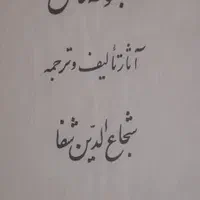 آثار تألیف و ترجمه
شجاع الدّین شفا